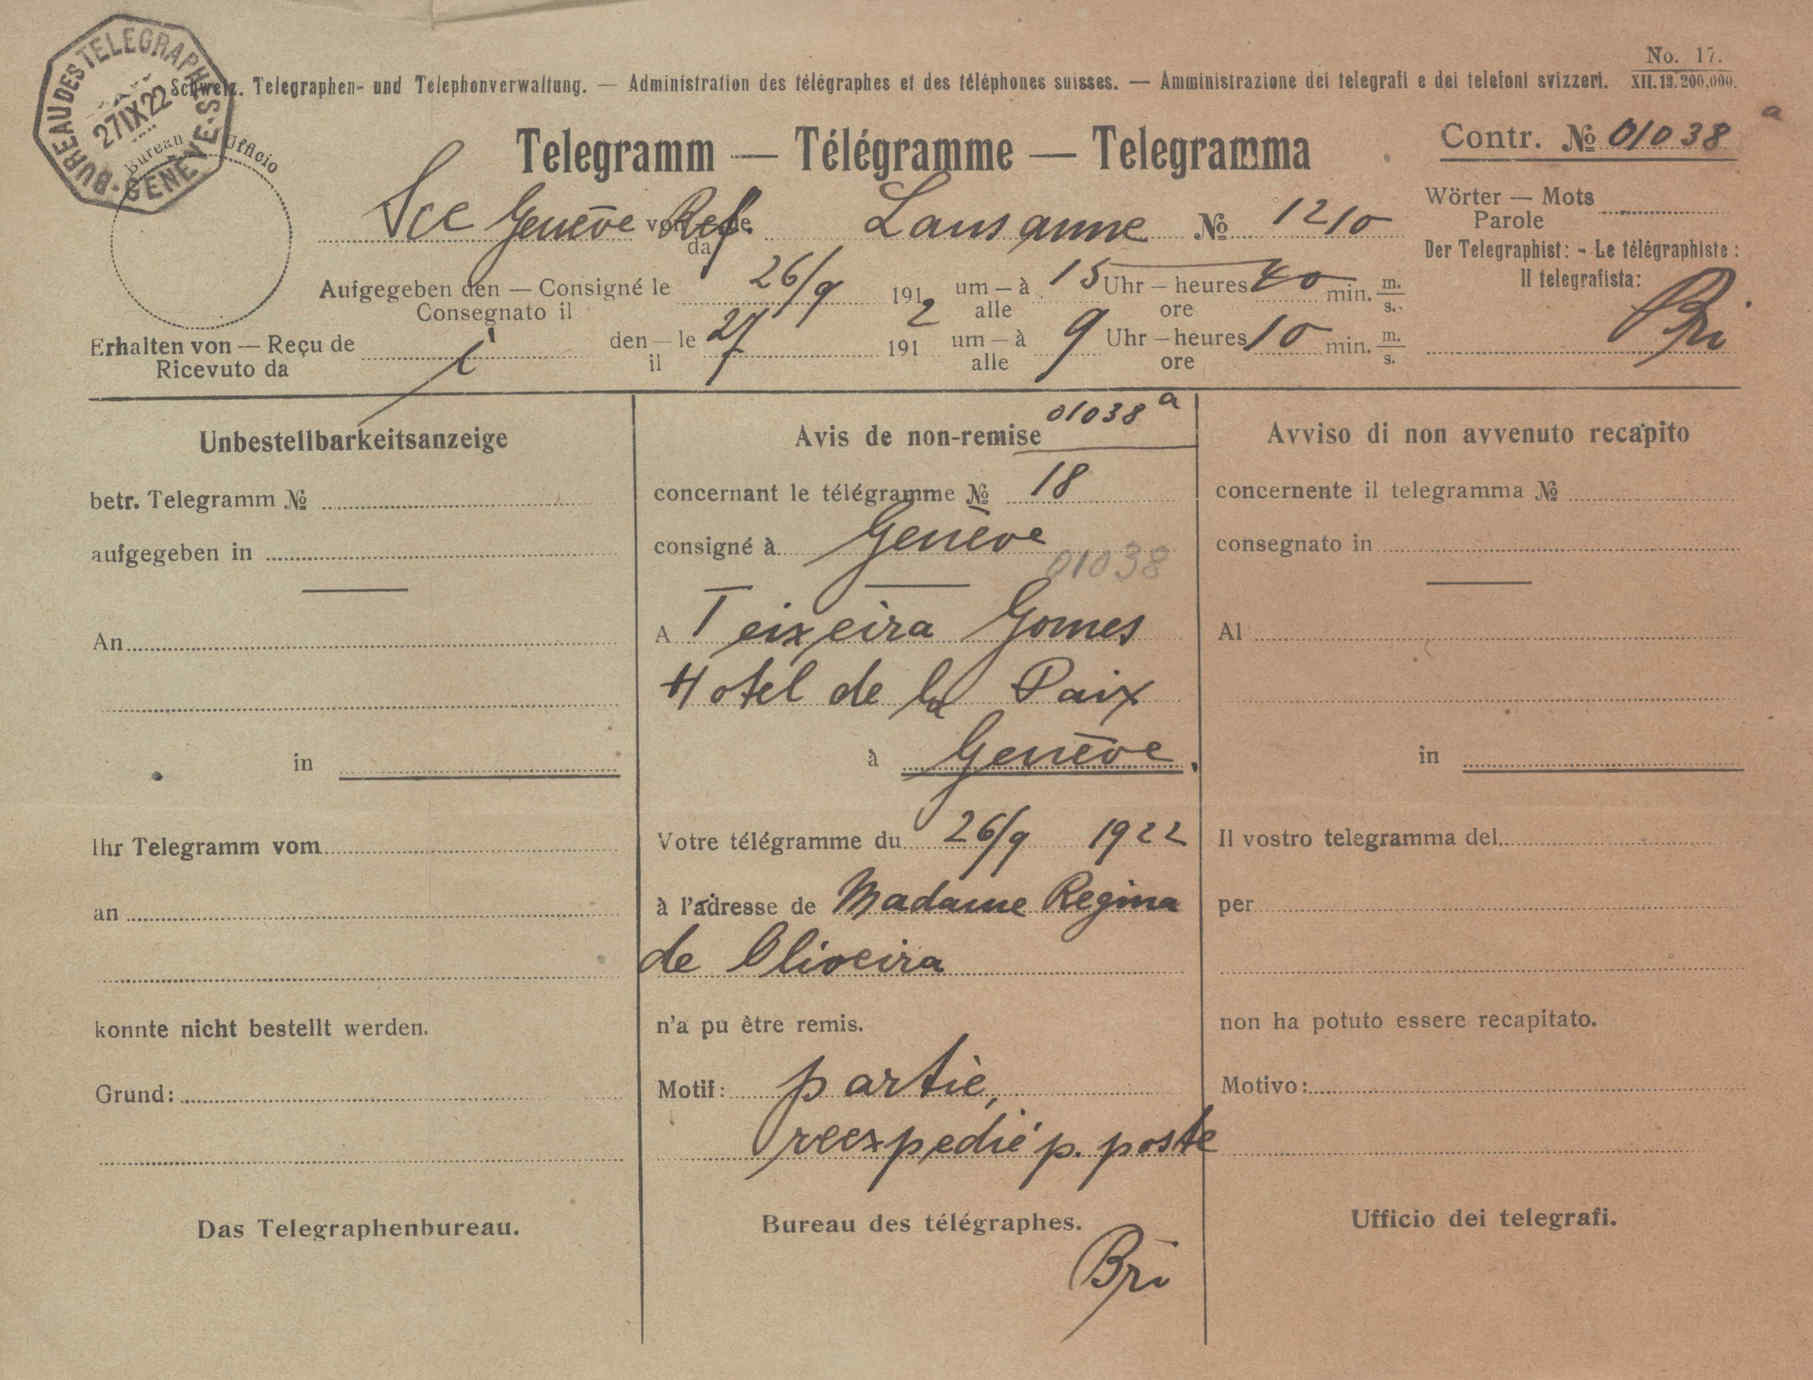 BUREAU DES TELEGRAPHES · GENÈVE ·
27 IX 22
No. 17.
XII. 13. 200,000.
Schweiz. Telegraphen- und Telephonverwaltung. — Administration des télégraphes et des téléphones suisses. — Amministrazione dei telegrafi e dei telefoni svizzeri.
Bureau Ufficio
Telegramm — Télégramme — Telegramma
Contr. № 01038 a
Sce Genève von de da Ref. Lausanne № 1210
Wörter — Mots
Parole
Der Telegraphist: - Le télégraphiste:
Il telegrafista:
Bri
Aufgegeben den — Consigné le 26/9 1912 um — à 15 Uhr — heures 40 min. m.
Consegnato il alle ore s.
Erhalten von — Reçu de i den — le 27 191 um — à 9 Uhr — heures 10 min. m.
Ricevuto da il alle ore s.
Unbestellbarkeitsanzeige
betr. Telegramm №
aufgegeben in
An
in
Ihr Telegramm vom
an
konnte nicht bestellt werden.
Grund:
Das Telegraphenbureau.
01038 a
Avis de non-remise
concernant le télégramme № 18
consigné à Genève
01038
A Teixeira Gomes
Hotel de la Paix
à Genève.
Votre télégramme du 26/9 1922
à l'adresse de Madame Regina
de Oliveira
n'a pu être remis.
Motif: partie,
reexpedié p. poste
Bureau des télégraphes.
Bri
Avviso di non avvenuto recapito
concernente il telegramma №
consegnato in
Al
in
Il vostro telegramma del
per
non ha potuto essere recapitato.
Motivo:
Ufficio dei telegrafi.